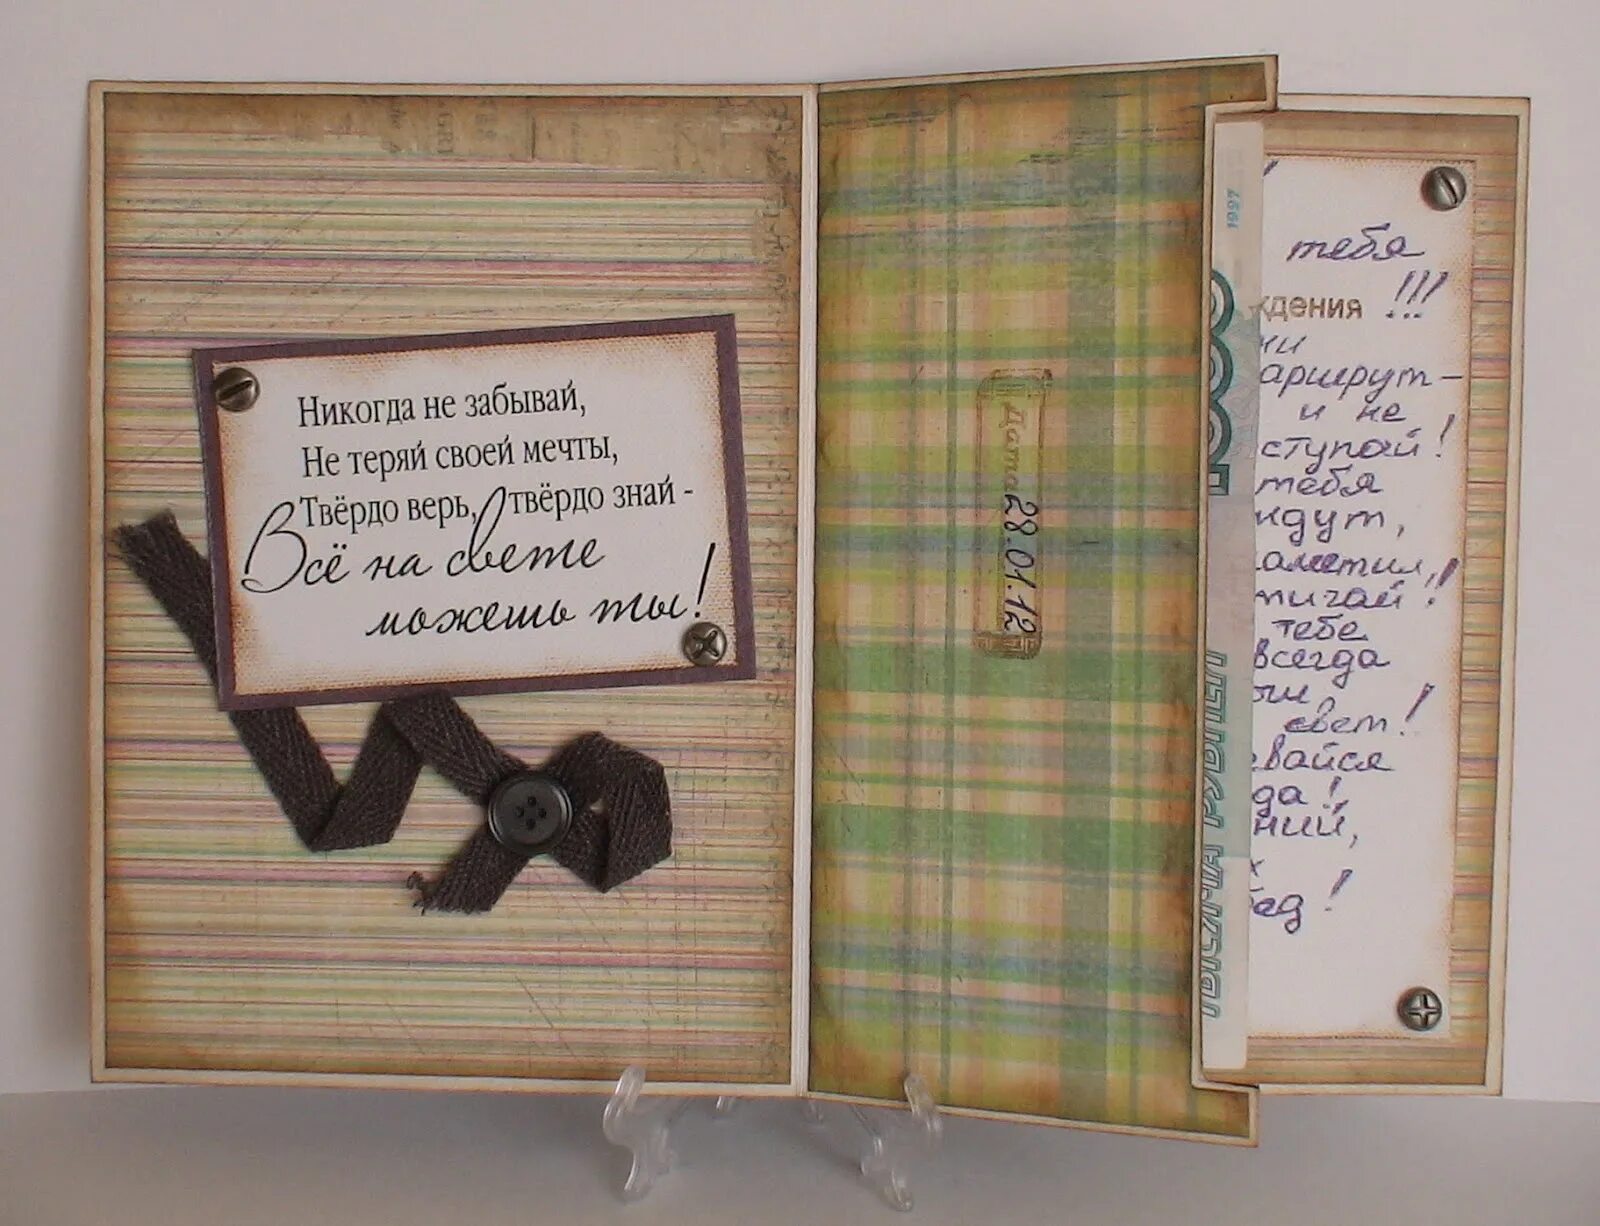 Никогда не забывай,
Не теряй своей мечты,
Твёрдо верь, твёрдо знай -
Всё на свете
можешь ты!
Дата 28.01.12
1997
1000
ТЫСЯЧА РУБЛЕЙ
тебя
ждения !!!
ни
аршрут –
и не
ступай!
тебя
ждут,
аметил,!
тигай!
тебе
всегда
свет!
евайся
да!
ний,
х
бед!